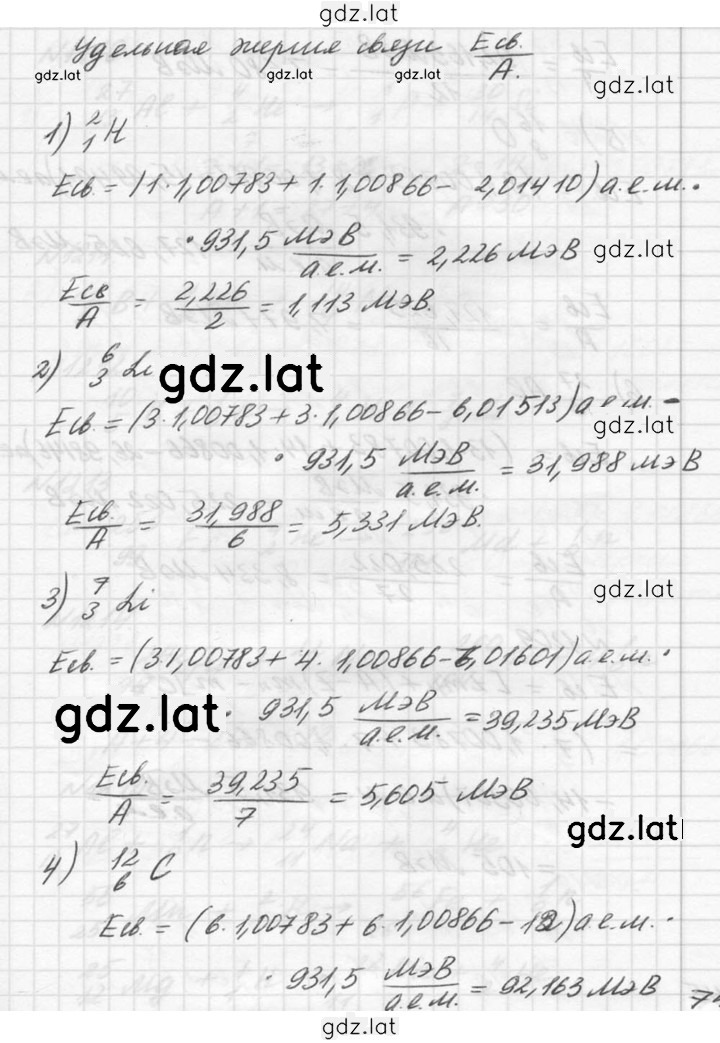 gdz.lat
Удельная энергия связи Eсв./A.
gdz.lat gdz.lat gdz.lat gdz.lat
1) ²₁H
Eсв. = (1·1,00783 + 1·1,00866 - 2,01410) а.е.м. ·
· 931,5 МэВ/а.е.м. = 2,226 МэВ gdz.lat
Eсв/A = 2,226/2 = 1,113 МэВ.
2) ⁶₃Li gdz.lat
Eсв. = (3·1,00783 + 3·1,00866 - 6,01513) а.е.м. ·
gdz.lat
· 931,5 МэВ/а.е.м. = 31,988 МэВ
Eсв./A = 31,988/6 = 5,331 МэВ.
3) ⁷₃Li gdz.lat
Eсв. = (31,00783 + 4·1,00866 - 7,01601) а.е.м. ·
gdz.lat · 931,5 МэВ/а.е.м. = 39,235 МэВ
Eсв./A = 39,235/7 = 5,605 МэВ
gdz.lat
4) ¹²₆C
Eсв. = (6·1,00783 + 6·1,00866 - 12) а.е.м. ·
· 931,5 МэВ/а.е.м. = 92,163 МэВ
gdz.lat